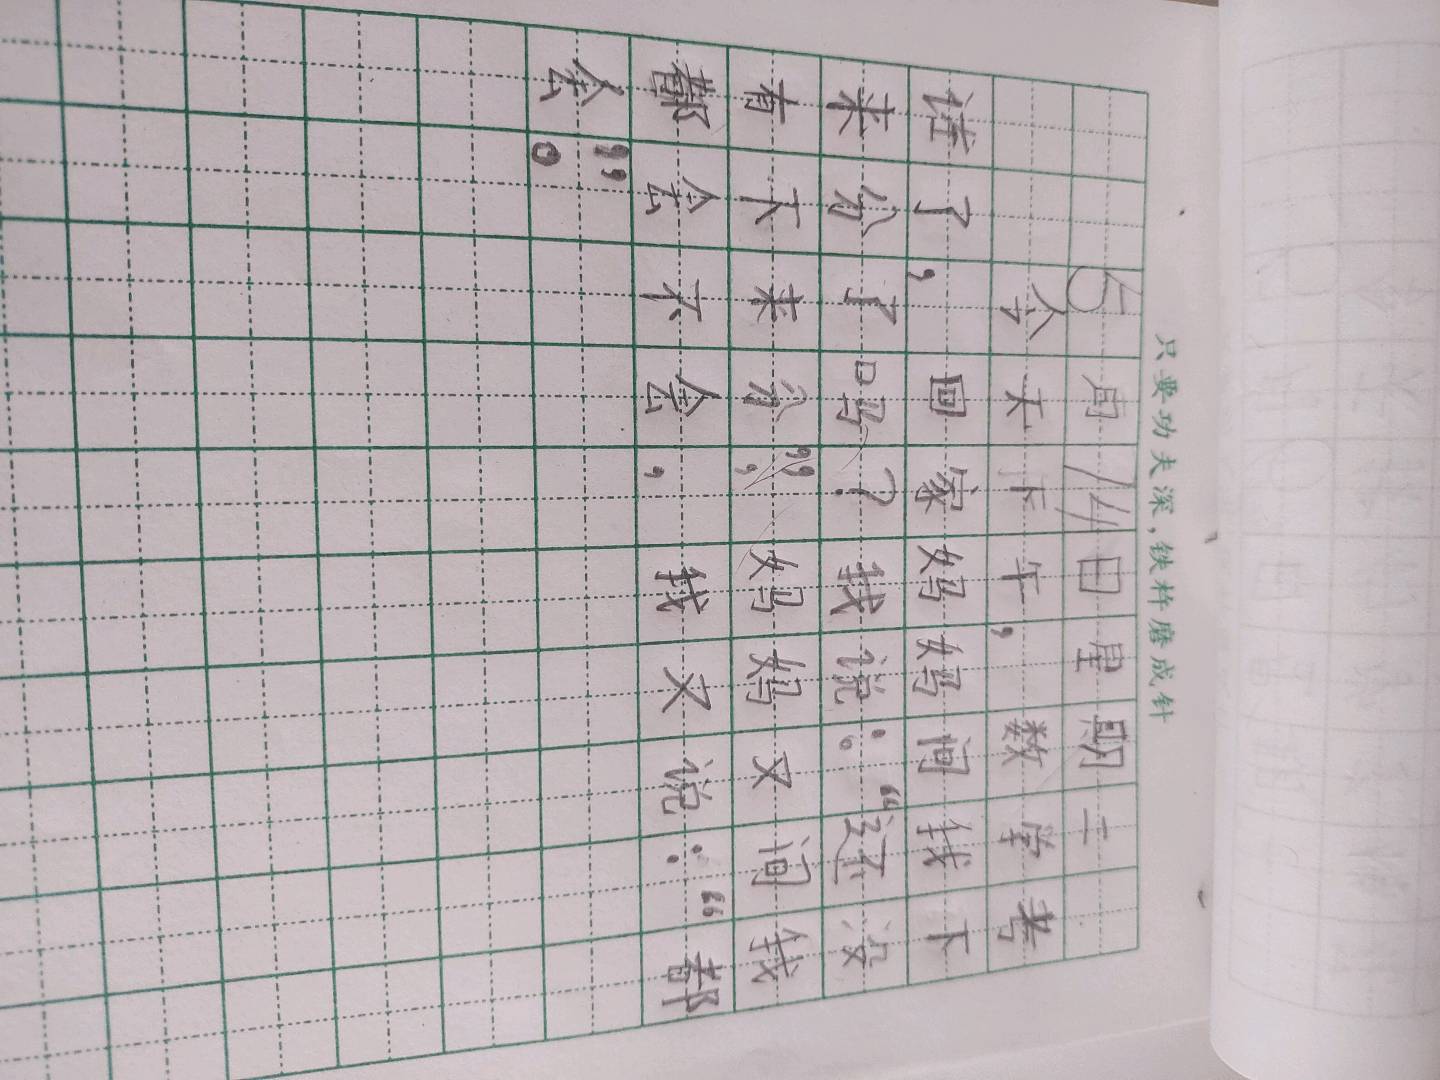 只要功夫深，铁杵磨成针
5周14日星期二
今天下午，数学考
诖了，回家妈妈问我下
来分了吗？我说：“还没
有下来分”，妈妈又问我
都会不会，我又说：“都
会”。